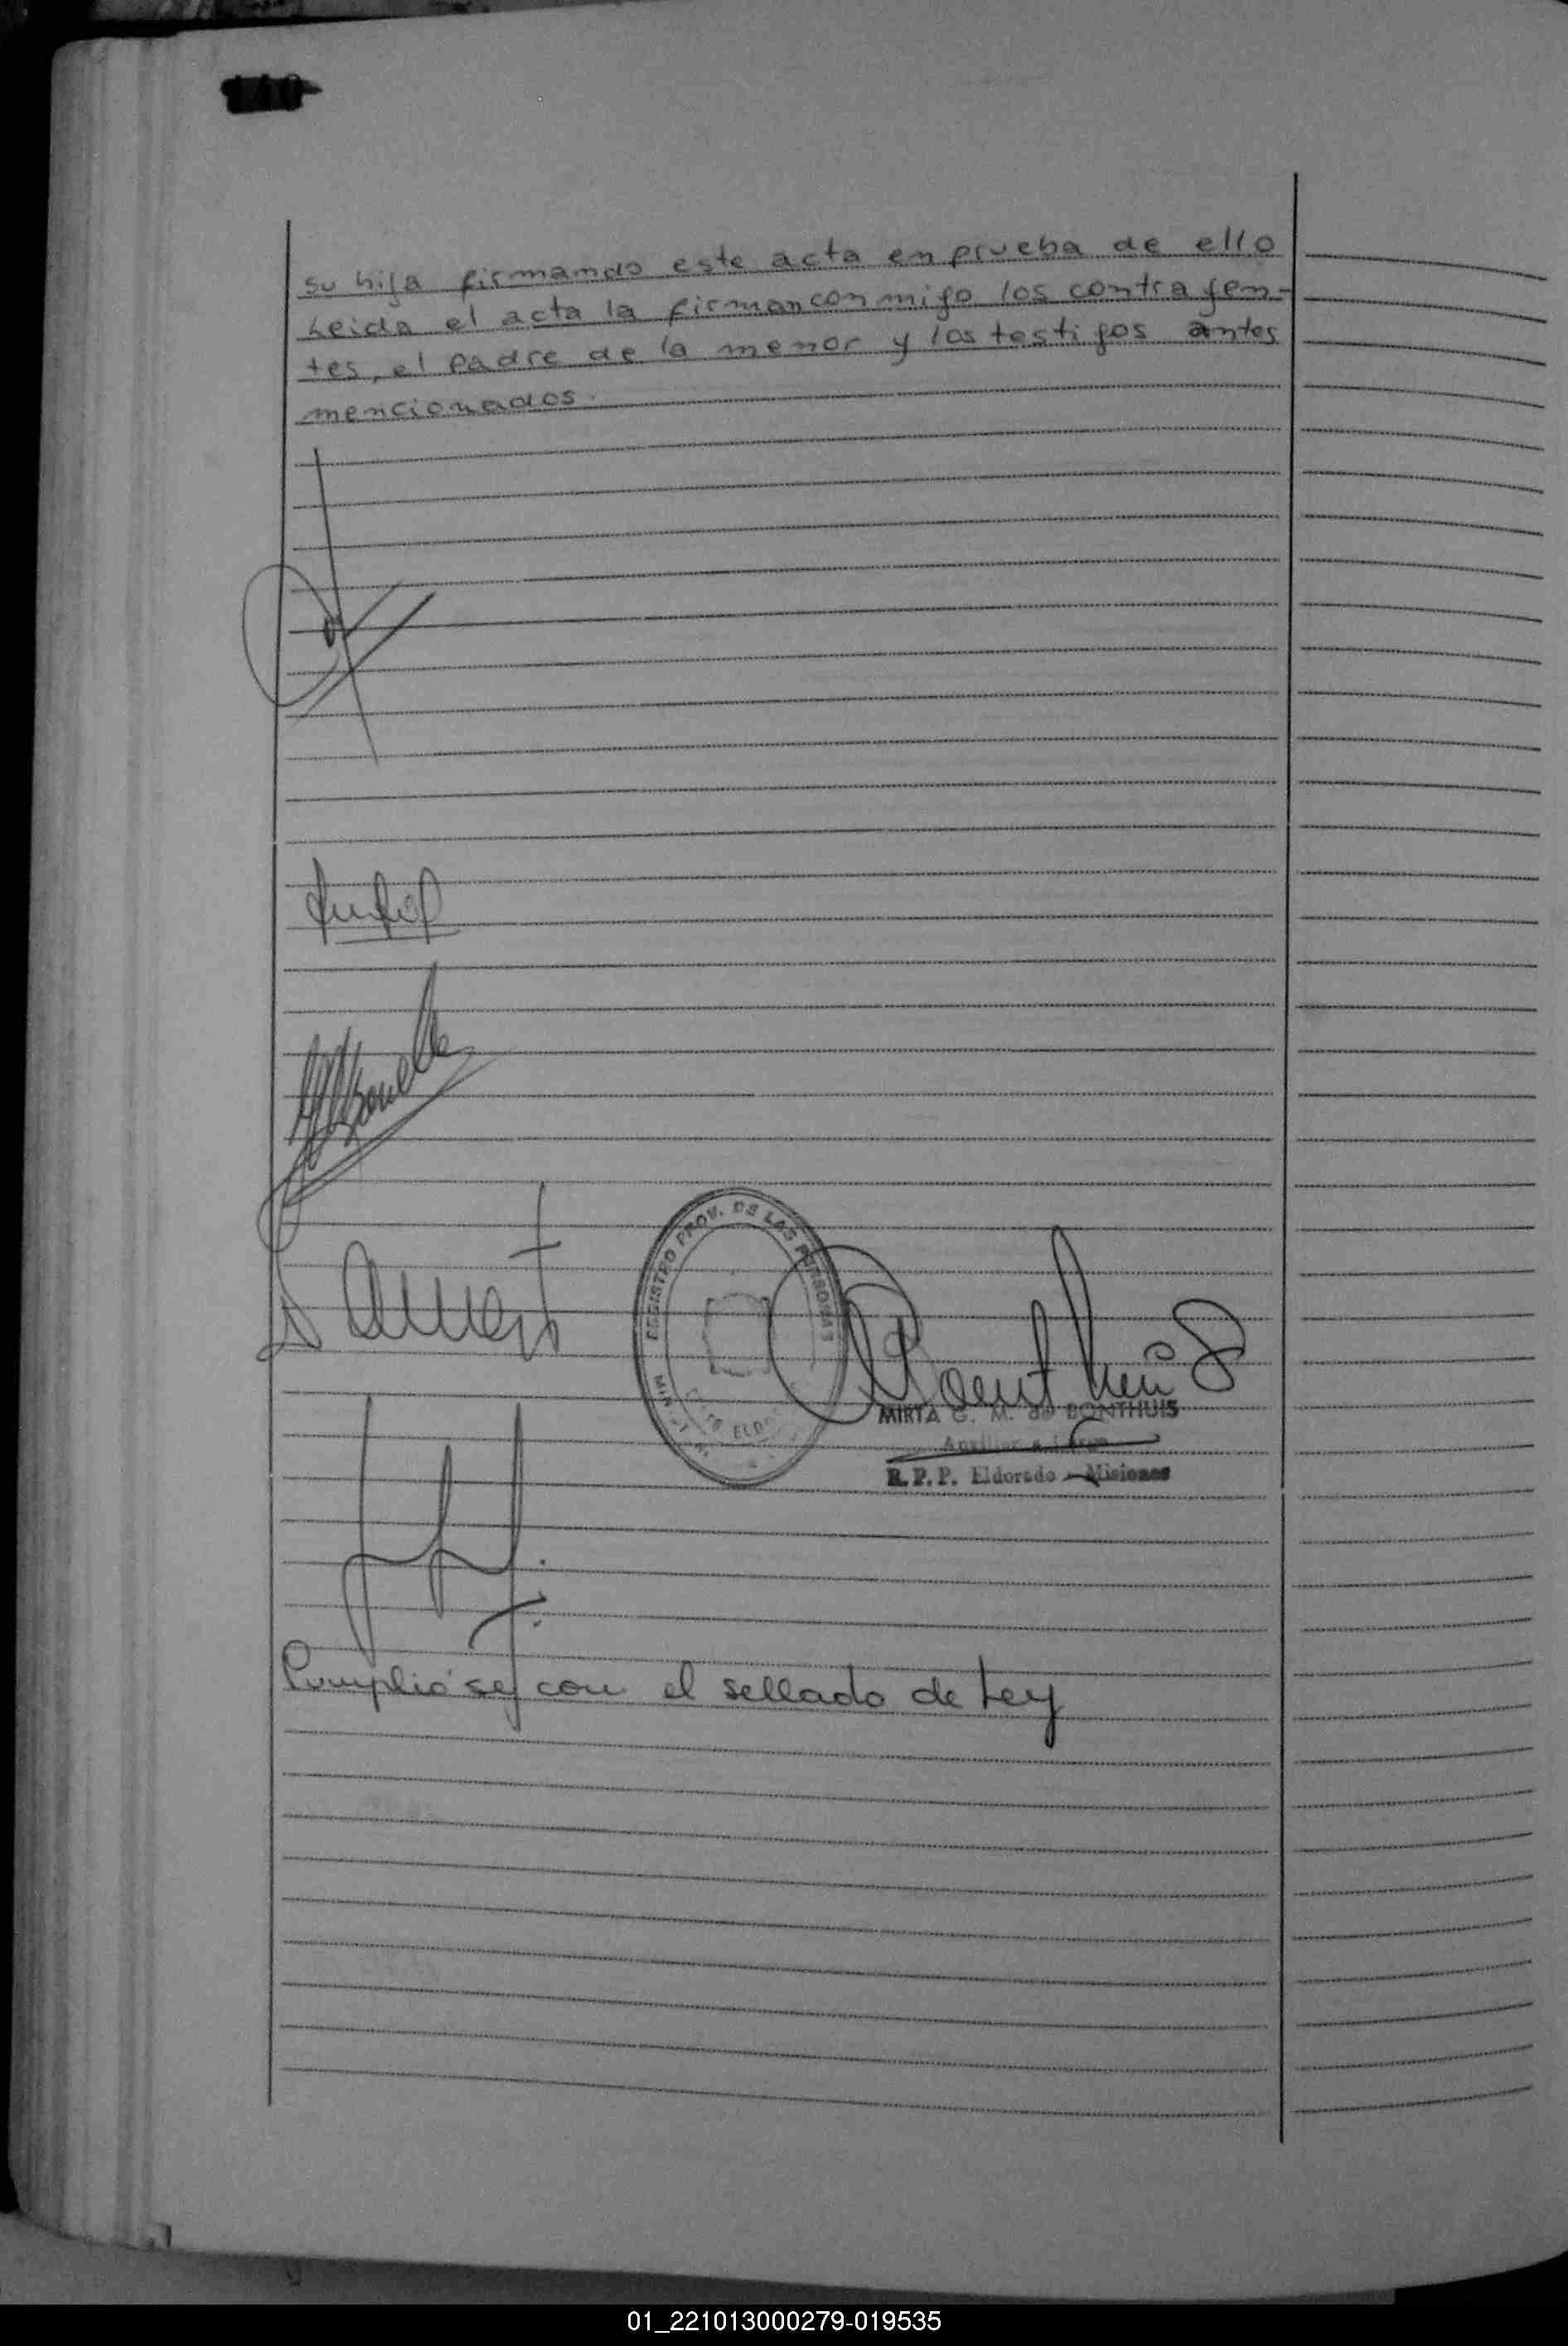 su hija firmando este acta en prueba de ello
Leida el acta la firman conmigo los contrayen-
tes, el padre de la menor y los testigos antes
mencionados.
REGISTRO PROV. DE LAS PERSONAS
MIRTA G. M. de BONTHUIS
R.P.P. Eldorado - Misiones
Cumplió se con el sellado de Ley
01_221013000279-019535